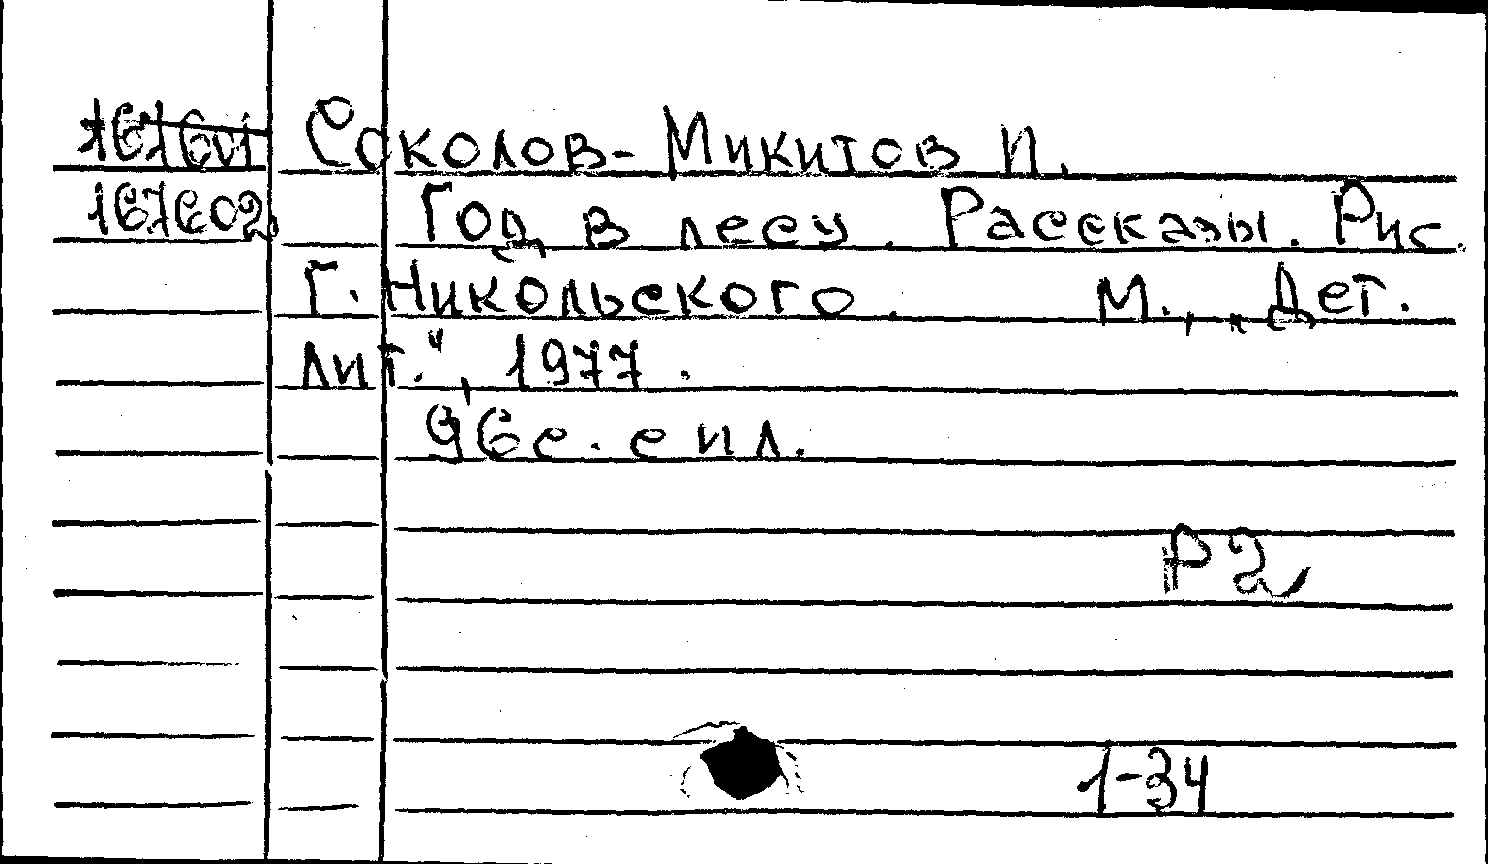 167601 Соколов-Микитов И.
167602 Год в лесу. Рассказы. Рис.
Г. Никольского. М., „Дет.
лит.", 1977.
96с. с ил.
Р2
1-34